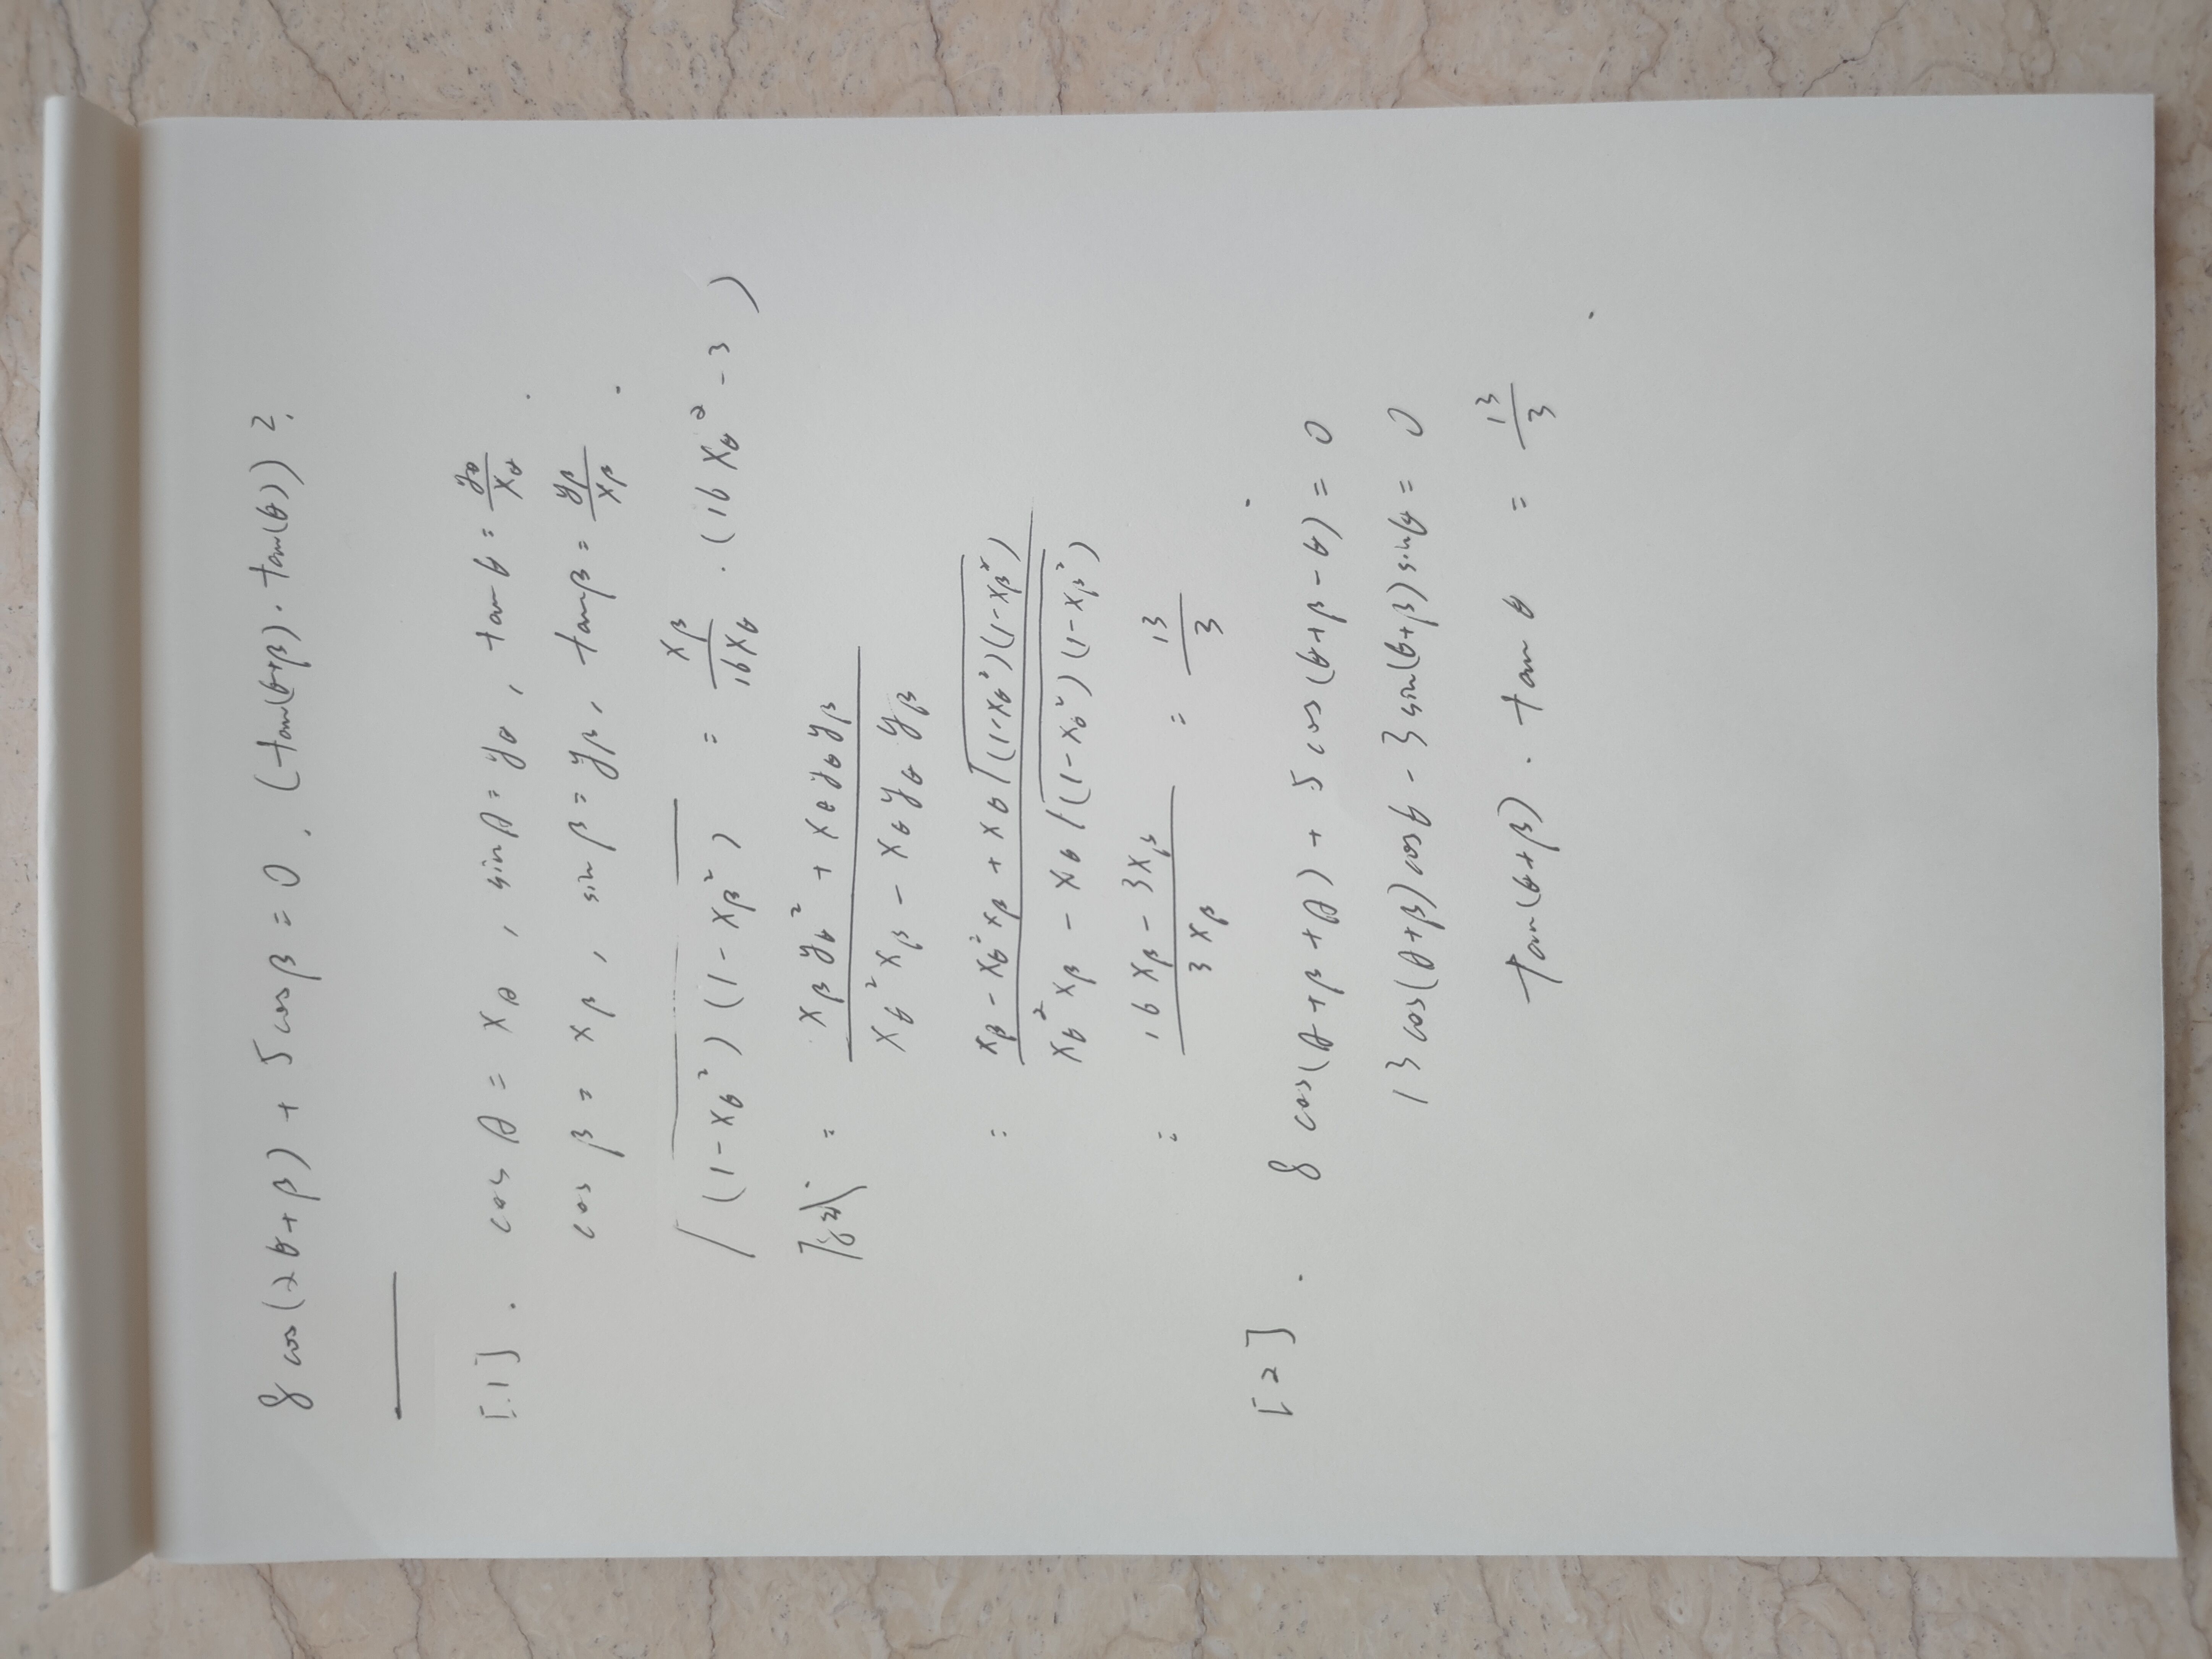 8 cos(2θ+β) + 5 cos β = 0 . (tan(θ+β) · tan(θ)) ?
[1] . cos θ = x_θ , sin θ = y_θ , tan θ = y_θ/x_θ .
cos β = x_β , sin β = y_β , tan β = y_β/x_β .
√((1-x_θ²)(1-x_β²)) = x_β/(16x_θ) · (16x_θ² - 3)
原式 = (x_β y_θ² + x_θ y_θ y_β)/(x_θ² x_β - x_θ y_θ y_β)
= (x_β - x_θ² x_β + x_θ√((1-x_θ²)(1-x_β²)))/(x_θ² x_β - x_θ√((1-x_θ²)(1-x_β²)))
= (16x_β - 3x_β)/(3x_β) = 13/3 .
[2] . 8 cos(θ+β+θ) + 5 cos(θ+β-θ) = 0
13 cos(θ+β) cos θ - 3 sin(θ+β) sin θ = 0
tan(θ+β) . tan θ = 13/3 .